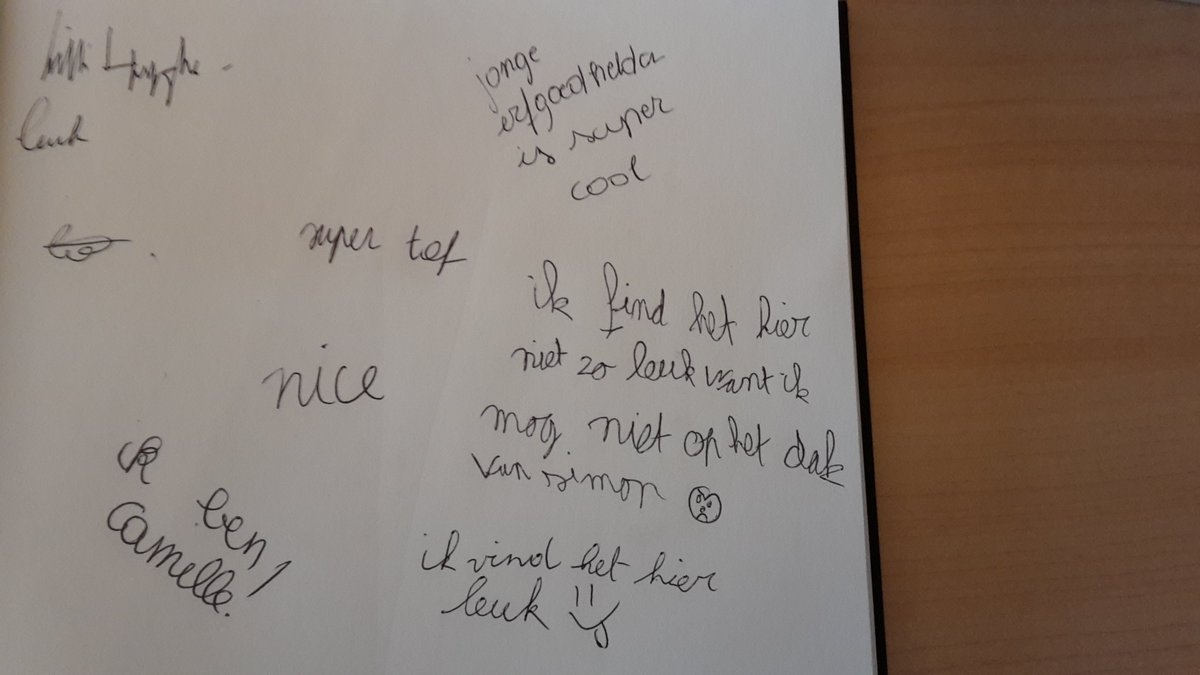 leuk
jonge
erfgoedhelda
is super
cool
super tof
nice
ik find het hier
niet zo leuk want ik
mog niet op het dak
van simon
ik ben
camelle!
ik vind het hier
leuk